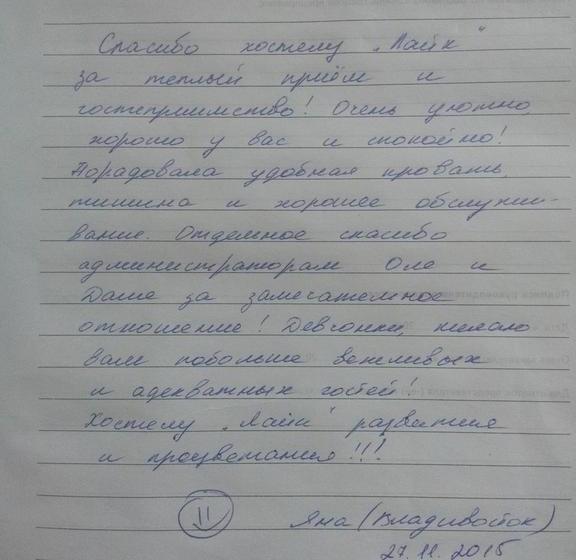 Спасибо хостелу "Лайк"
за теплый приём и
гостеприимство! Очень уютно,
хорошо у вас и спокойно!
Порадовала удобная кровать,
тишина и хорошее обслужи-
вание. Отдельное спасибо
администраторам Оле и
Даше за замечательное
отношение! Девчонки, желаю
вам побольше вежливых
и адекватных гостей!
Хостелу "Лайк" развития
и процветания!!!
11 Яна (Владивосток)
27.11.2015